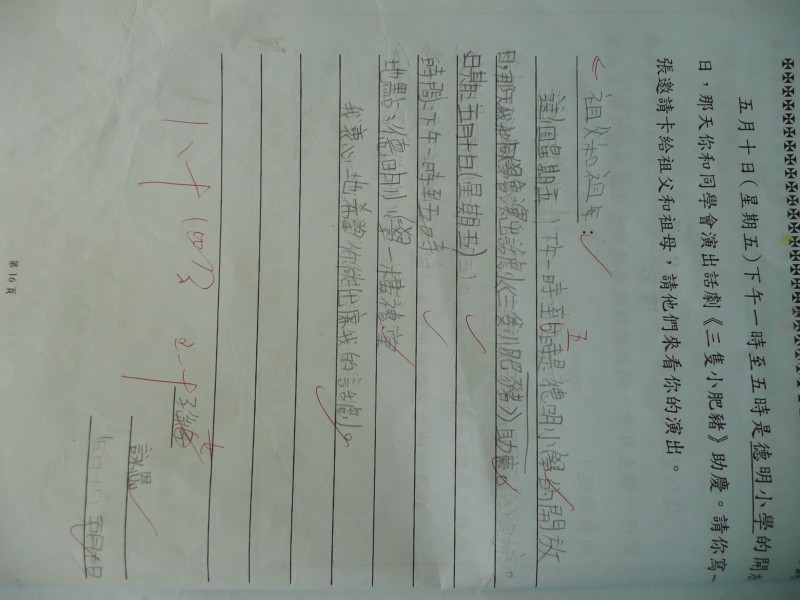 五月十日(星期五)下午一時至五時是德明小學的開
日，那天你和同學會演出話劇《三隻小肥豬》助慶。請你寫、
張邀請卡給祖父和祖母，請他們來看你的演出。
祖父和祖母：
這個星期五下午一時至五時是德明小學的開放
日，那天我和同學會演出話劇《三隻小肥豬》助慶。
日期：五月十日(星期五)
時間：下午一時至五時
地點：德明小學一樓禮堂
我衷心地希望你們能
我的話劇。
孫
第16頁